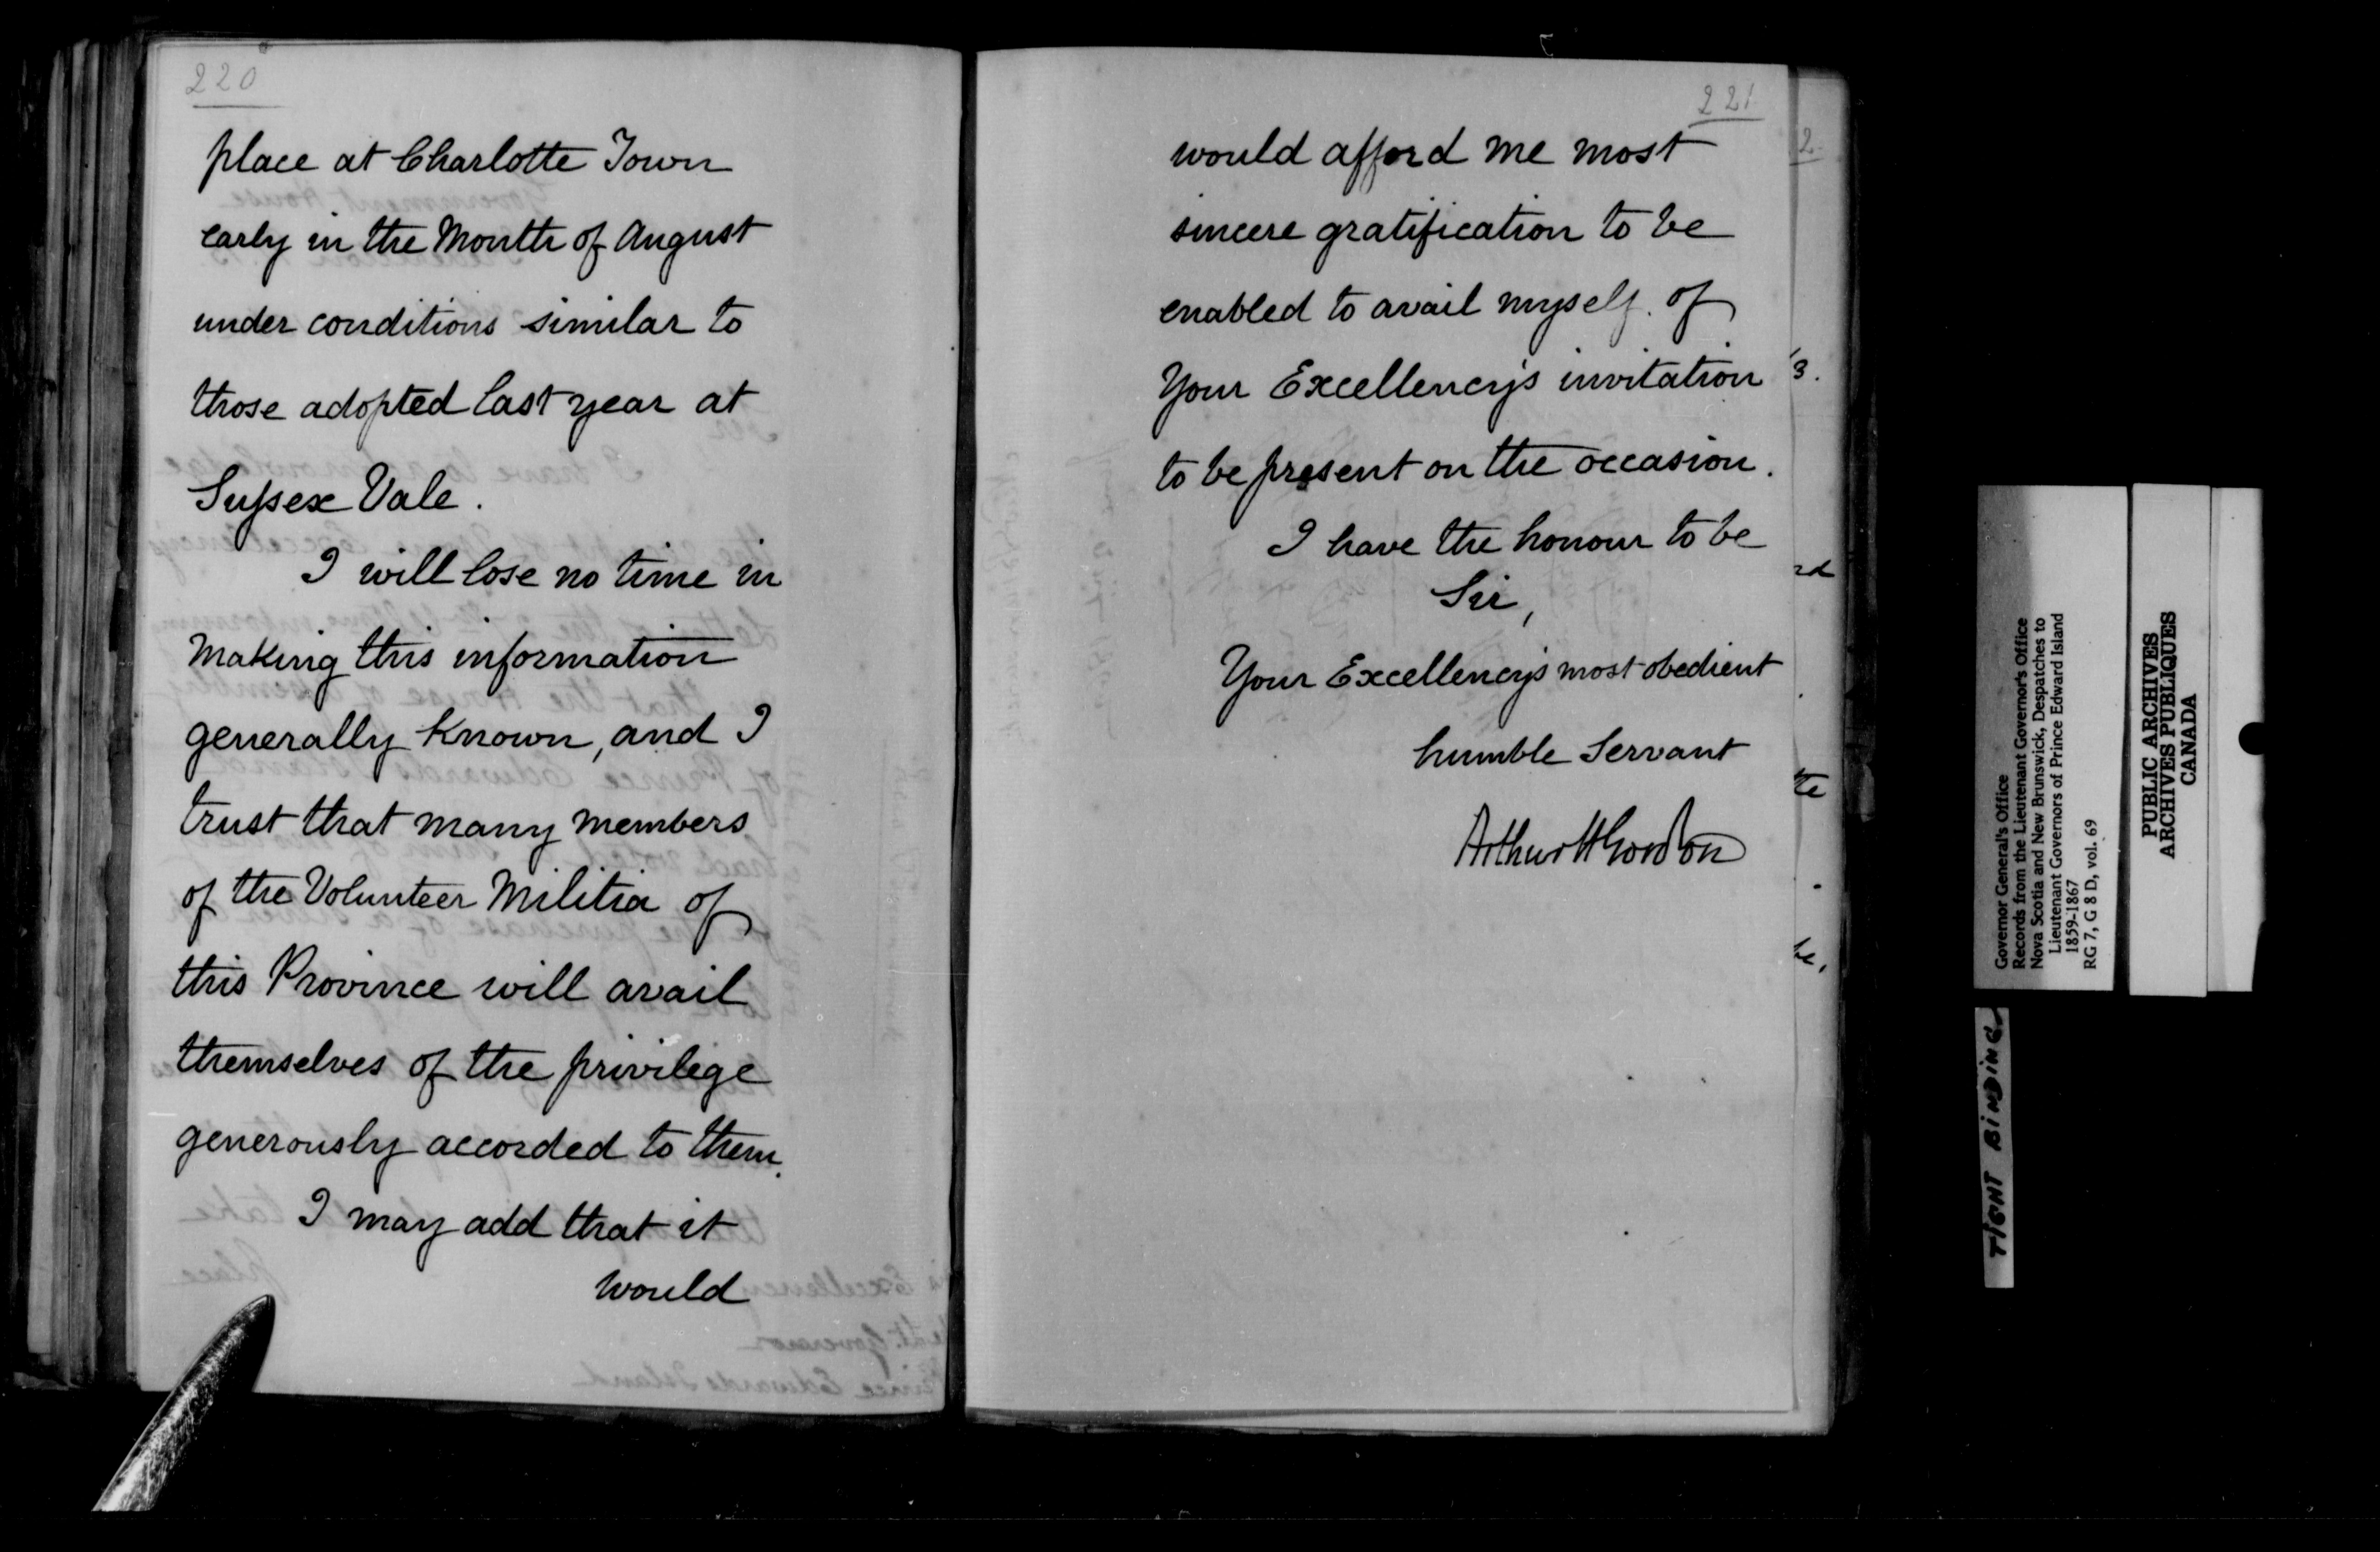 220
place at Charlotte Town
early in the Month of August
under conditions similar to
those adopted last year at
Sussex Vale.
I will lose no time in
making this information
generally known, and I
trust that many members
of the Volunteer Militia of
this Province will avail
themselves of the privilege
generously accorded to them.
I may add that it
would
221
would afford me most
sincere gratification to be
enabled to avail myself of
Your Excellency's invitation
to be present on the occasion.
I have the honour to be
Sir,
Your Excellency's most obedient
humble Servant
Arthur H Gordon
Governor General's Office
Records from the Lieutenant Governor's Office
Nova Scotia and New Brunswick, Despatches to
Lieutenant Governors of Prince Edward Island
1859-1867
RG 7, G 8 D, vol. 69
PUBLIC ARCHIVES
ARCHIVES PUBLIQUES
CANADA
TIGHT BINDING